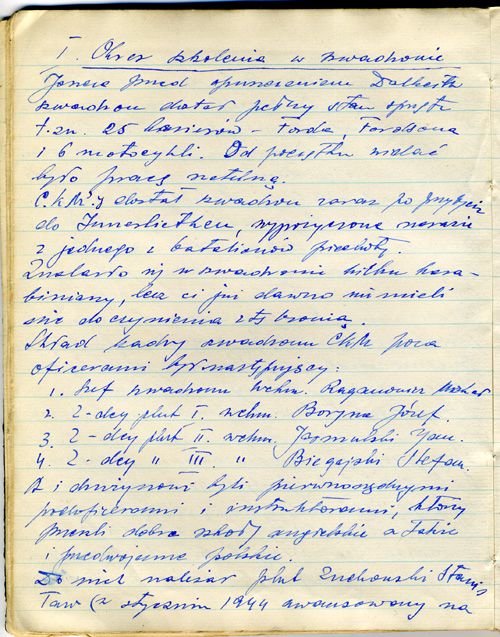 I. Okres szkolenia w szwadronie
Jeszcze przed opuszczeniem Dalkeith
szwadron dostał pełny stan sprzętu
t.zn. 25 – Forda, Fordsona
i 6 motocykli. Od początku widać
było pracę rzetelną.
C.k.m'y dostał szwadron zaraz po przybyciu
do Innerleithen, wypożyczone narazie
z jednego z batalionów piechoty.
Znalazło się w szwadronie kilku kara-
biniarzy, lecz ci już dawno nie mieli
nic do czynienia z tą bronią.
Skład kadry szwadronu CKM poza
oficerami był następujący:
1. Szef szwadronu wchm. Raganowicz
2. Z-dcy plut I. wchm. Boryna Józef.
3. Z-dcy plut II. wchm. Jan.
4. Z-dcy " III. " Biegajski Stefan.
A i drużynowi byli pierwszorzędnymi
podoficerami i instruktorami, którzy
przeszli dobre szkoły angielskie a także
i przedwojenne polskie.
Do nich należał plut Żuchowski Stanis
ław (w styczniu 1944 awansowany na